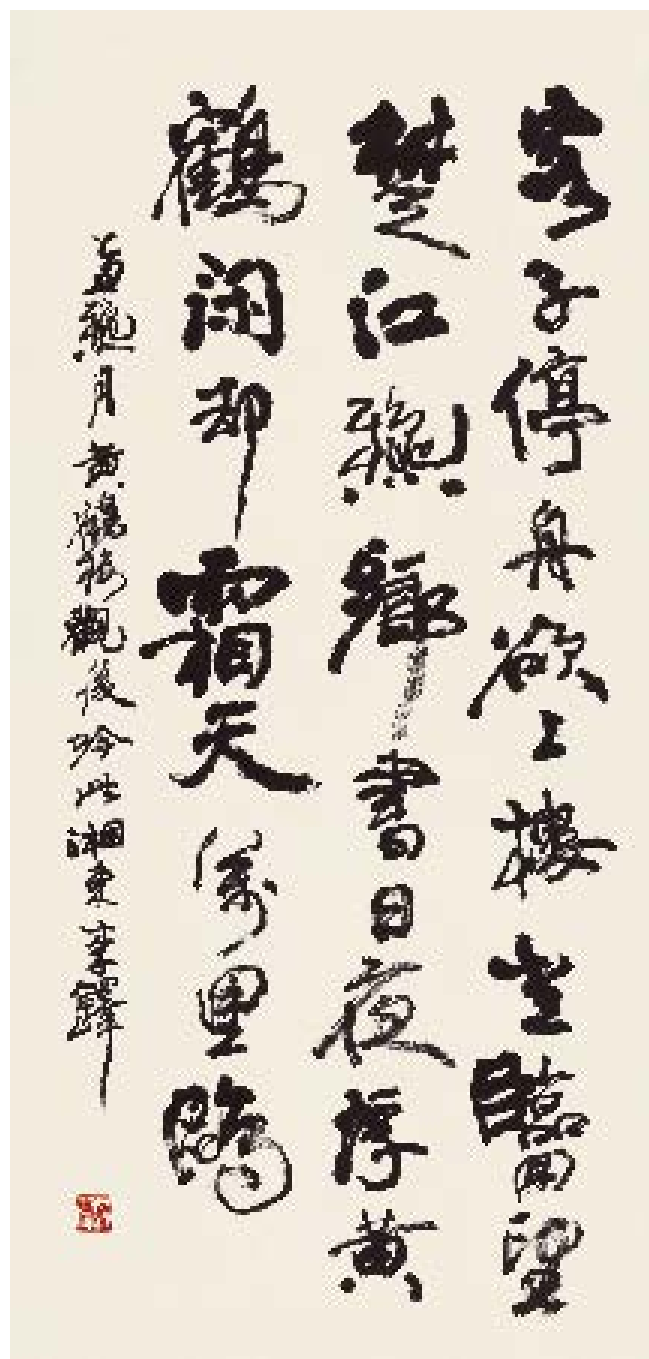 客子停舟欲上樓臨望
楚江龝鄉書日夜浮黃
鶴閑却霜天萬里鷗
孟龝月黃鶴樓觀後吟此湘東李鐸